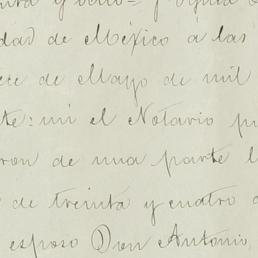 y ocho=
dad de México a las
ce de Mayo de mil
te: mí el Notario pu
ron de una parte l
de treinta y cuatro a
esposo Don Antonio,